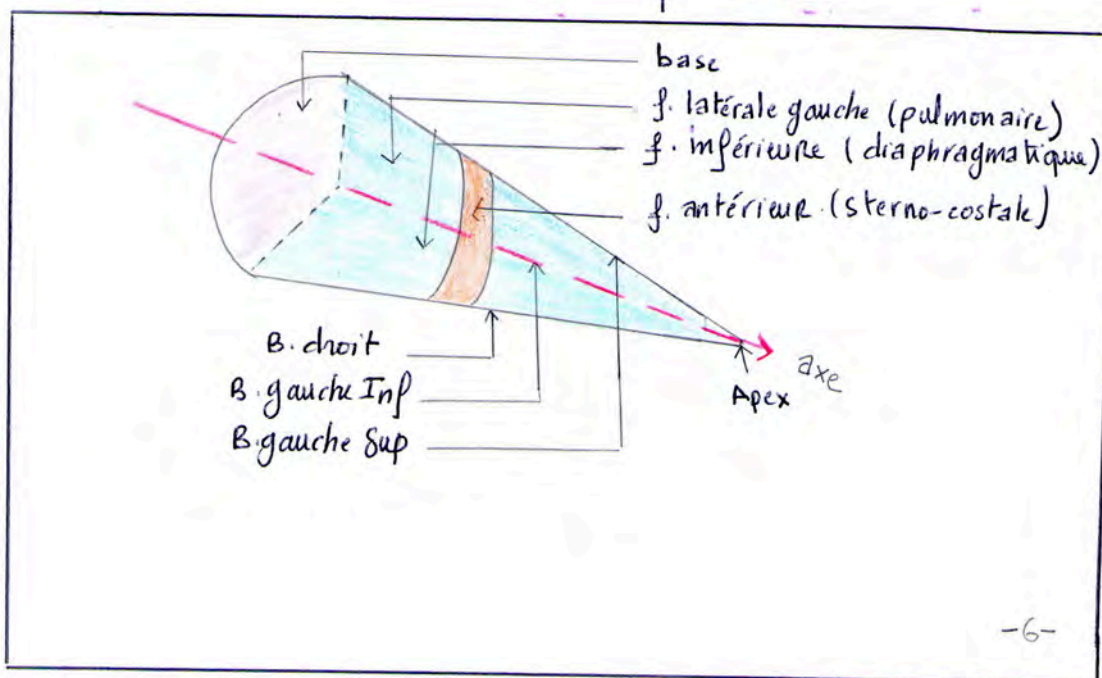 base
f. latérale gauche (pulmonaire)
f. inférieure (diaphragmatique)
f. antérieur (sterno-costale)
B. droit
B. gauche Inf
B. gauche Sup
Apex
axe
-6-